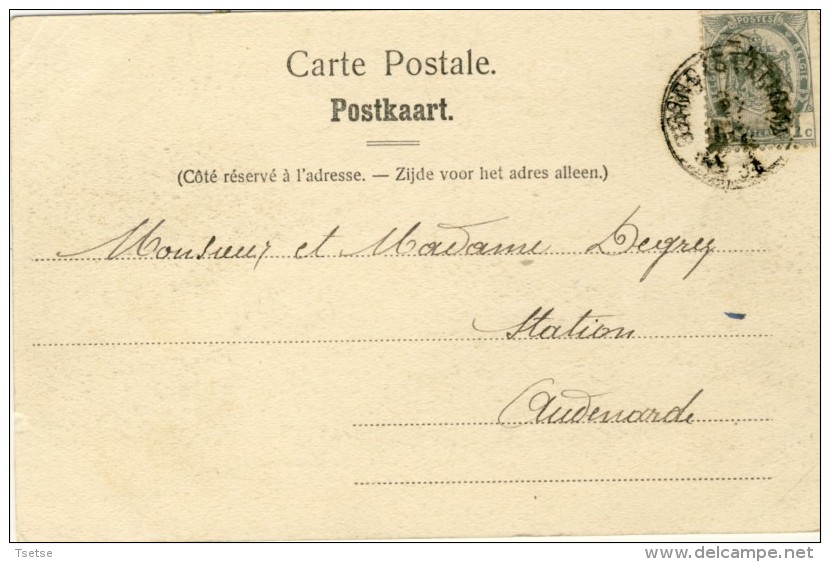 POSTES
BELGIE
1c
Carte Postale.
Postkaart.
(Côté réservé à l'adresse. — Zijde voor het adres alleen.)
Monsieur et Madame Degrey
Station
Audenarde
Tsetse
www.delcampe.net